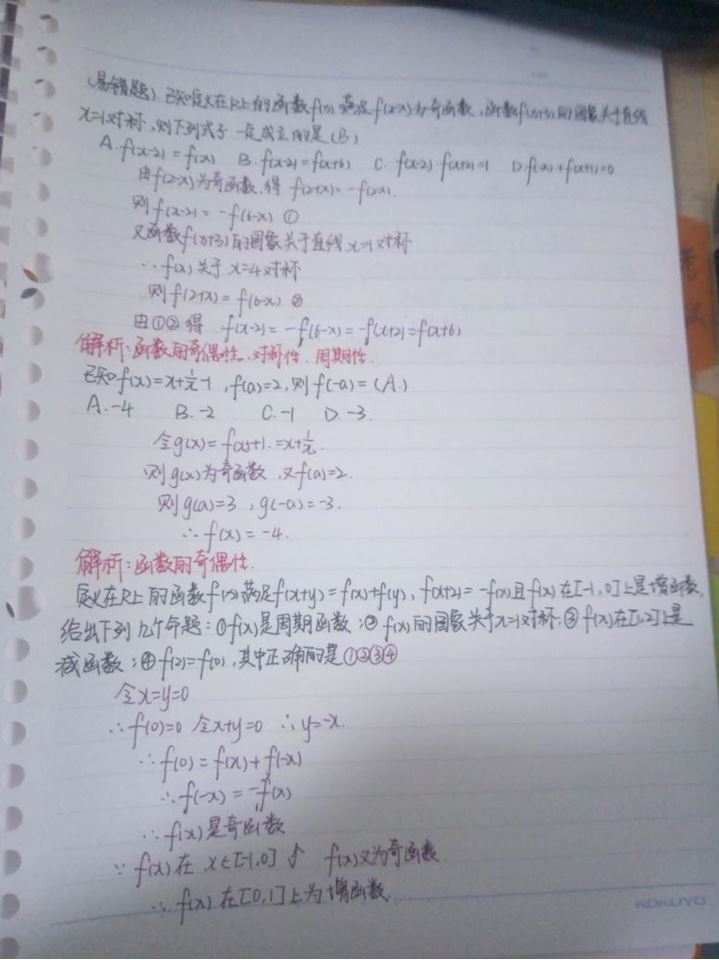 (易错题) 已知定义在R上的函数f(x)满足f(2-x)为奇函数,函数f(x+3)的图象关于直线
x=1对称,则下列式子一定成立的是(B)
A.f(x-2)=f(x) B.f(x-2)=f(x+6) C.f(x-2)·f(x+2)=1 D.f(-x)+f(x+1)=0
由f(2-x)为奇函数,得 f(2+x)=-f(2-x).
则f(x-2)=-f(6-x) ①
又函数f(x+3)的图象关于直线x=1对称
∴f(x)关于x=4对称
则f(2+x)=f(6-x) ②
由①②得 f(x-2)=-f(6-x)=-f(x+2)=f(x+6)
解析:函数的奇偶性.对称性.周期性.
已知f(x)=x+1/x-1,f(a)=2,则f(-a)=(A.)
A.-4 B.-2 C.-1 D.-3.
令g(x)=f(x)+1.=x+1/x.
则g(x)为奇函数,又f(a)=2.
则g(a)=3,g(-a)=-3.
∴f(x)=-4.
解析:函数的奇偶性.
定义在R上的函数f(x)满足f(x+y)=f(x)+f(y),f(x+2)=-f(x)且f(x)在[-1,0]上是增函数,
给出下列几个命题:①f(x)是周期函数;②f(x)的图象关于x=1对称;③f(x)在[1,2]上是
减函数;④f(2)=f(0),其中正确的是①②③④
令x=y=0
∴f(0)=0 令x+y=0 ∴y=-x.
∴f(0)=f(x)+f(-x)
∴f(-x)=-f(x)
∴f(x)是奇函数
∵f(x)在x∈[-1,0]↑ f(x)又为奇函数
∴f(x)在[0,1]上为增函数.
KOKUYO